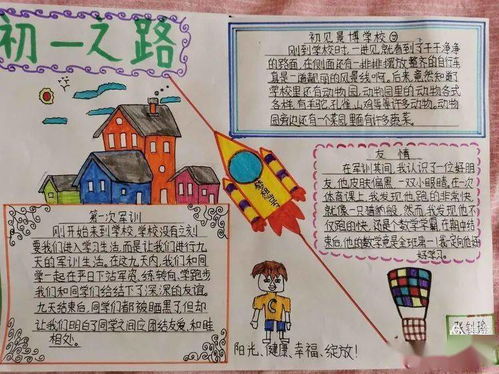 初一之路
初见景博学校
刚到学校时,一进见就看到了干干净净
的路面,在侧面还有一排排摆放整齐的自行车
真是一道靓丽的风景线呀。后来,竟然知道了
学校里还有动物园。动物园里的动物各式
各样,有羊驼、孔雀、山鸡等等许多动物。动物
园旁边还有一个菜园,里面有许多蔬菜。
友情
在军训其间,我认识了一位好朋
友,他皮肤偏黑,一双小眼睛。在一次
体育课上,我发现他跑的非常快,
就像一只猎豹。然而,我发现他不
仅跑的快,还是个数学学霸。在期中结
束后,他的数学竟是全班第一,我要向他
好学习。
第一次军训
刚开始来到学校,学校没有立刻
要我们进入学习生活,而是让我们进行九
天的军训生活。在这九天内,我们和同
学一起在平日下站军姿、练转向、学跑步
我们和同学们给结下了深深的友谊。
九天结束后,同学们都被晒黑了但却
让我们明白了同学之间应团结友爱,和睦
相处。
阳光、健康、幸福、绽放!